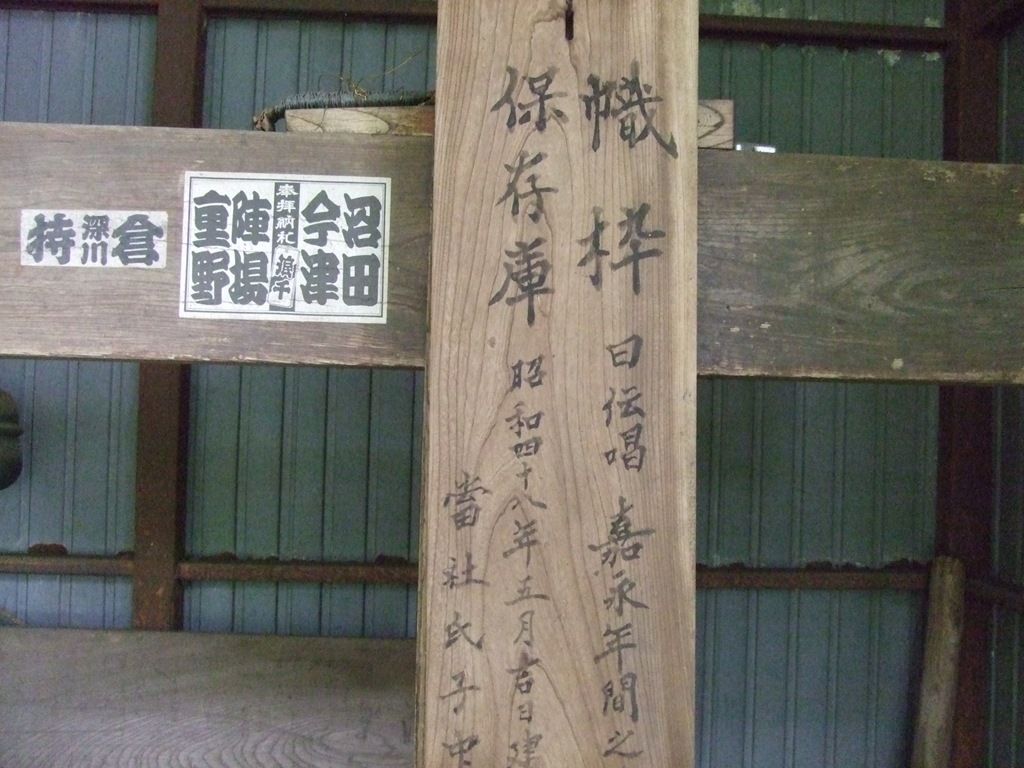 幟枠 日伝唱 嘉永年間之
保存庫 昭和四十八年五月吉日建
當社氏子中
沼田
今津
奉拝納札
陣場
重野
倉
深川
持